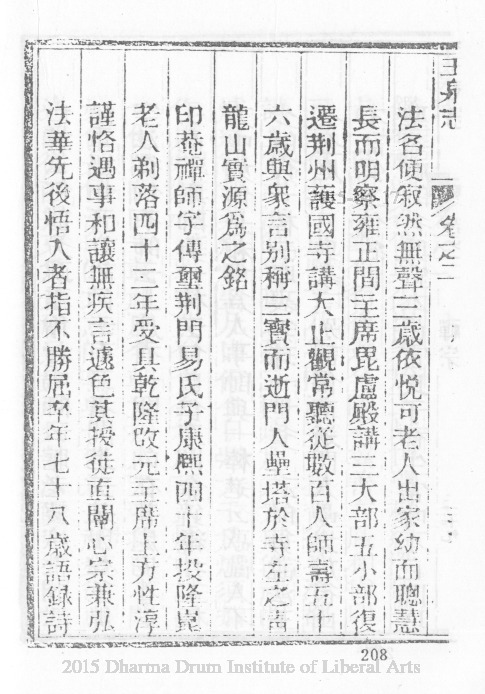 玉泉志 卷之二
法名便寂然無聲三歲依悅可老人出家幼而聰慧
長而明察雍正間主席毘盧殿講三大部五小部復
遷荆州護國寺講大止觀常聽從數百人師壽五十
六歲與衆言别稱三寶而逝門人壘塔於寺左之
龍山實源爲之銘
印菴禪師字傳璽荆門易氏子康熙四十年投隆崑
老人剃落四十二年受具乾隆改元主席上方性淳
謹恪遇事和讓無疾言遽色其授徒直闡心宗兼弘
法華先後悟入者指不勝屈卒年七十八歲語錄詩
208
2015 Dharma Drum Institute of Liberal Arts